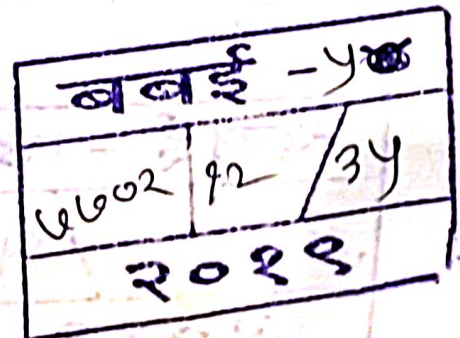 बबई - ५
७७०२ | १२ / ३५
२०१९